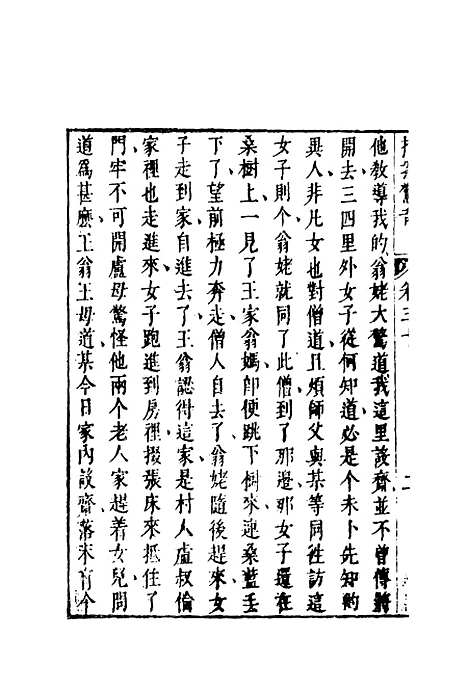 拍案驚奇 卷三十
他教導我的翁姥大驚道我這里設齋並不曾傳將
開去三四里外女子從何知道必是个未卜先知的
異人非凡女也對僧道且煩師父與某等同往訪這
女子則个翁姥就同了此僧到了那邊那女子還在
桑樹上一見了王家翁媽卽便跳下樹來連桑籃丟
下了望前極力奔走僧人自去了翁姥隨後趕來女
子走到家自進去了王翁認得這家是村人盧叔倫
家裡也走進來女子跑進到房裡掇張床來抵住了
門牢不可開盧母驚怪他兩个老人家趕着女兒問
道爲甚麽王翁王母道某今日家內設齋落末有个